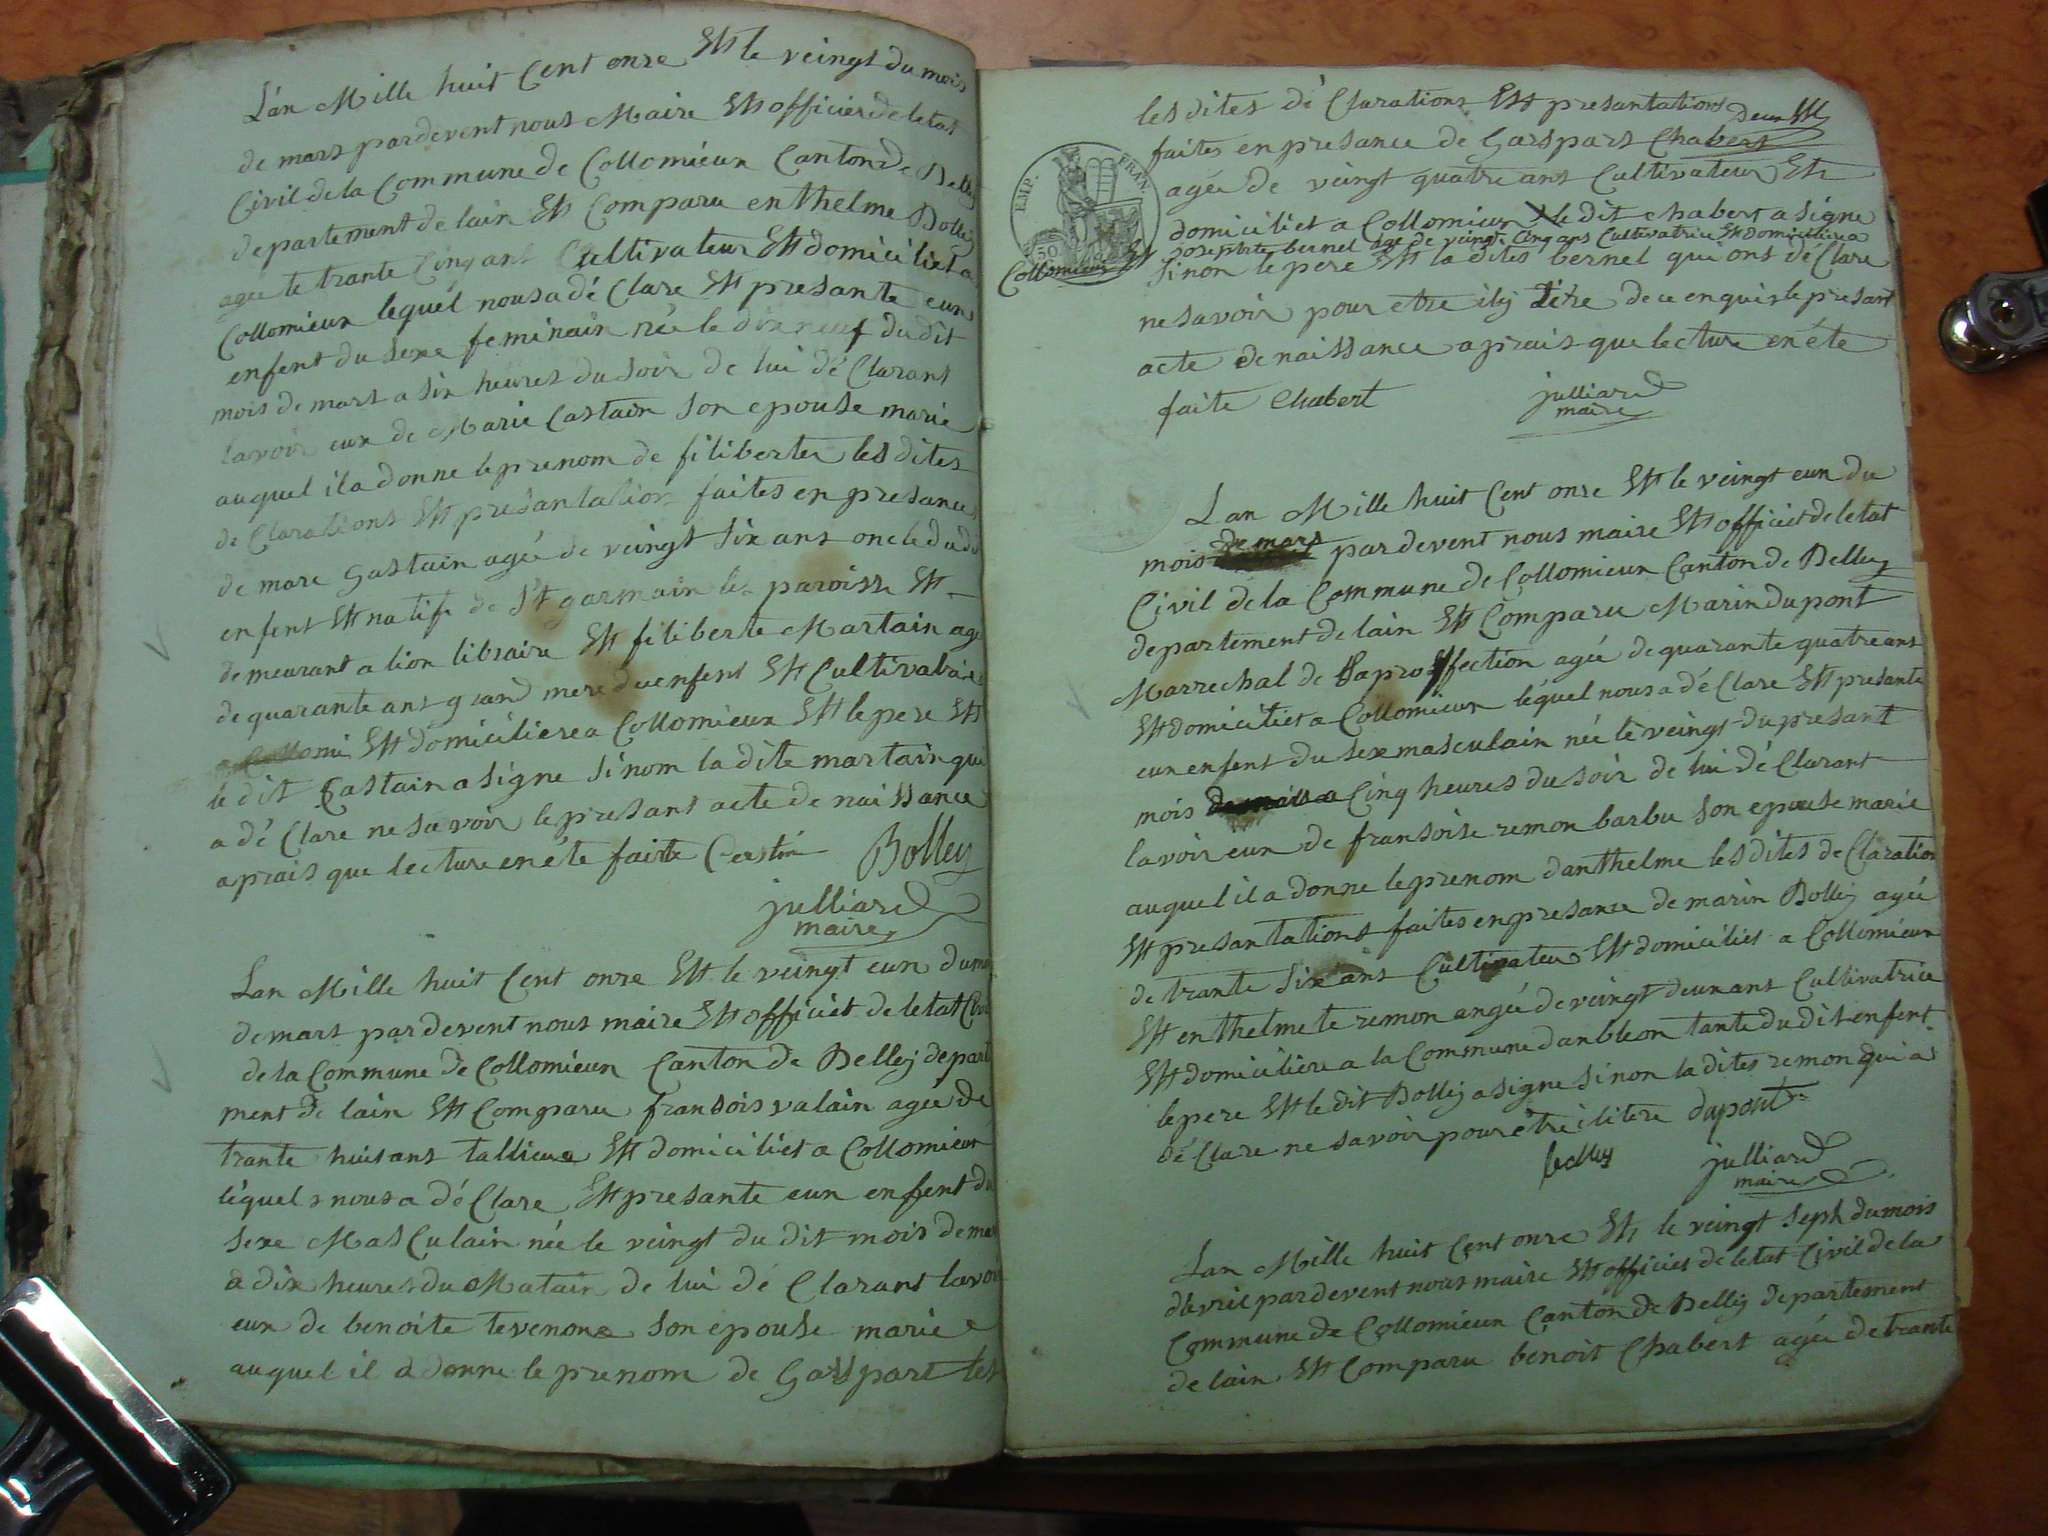 L'an Mille huit Cent onze Et le veingt du mois
de mars pardevent nous Maire Et officier de letat
Civil de la Commune de Collomieux Canton de Belley
departement de lain Et Comparu enthelme Bolley
agee te trante Cinq ant Cultivateur Et domiciliet a
Collomieux lequel nous a dé Clare Et presante eun
enfent du sexe feminain née le dix neuf du dit
mois de mars a six heures du soir de lui dé Clarant
lavoir eux de Marie Castain son epouse marie
auquel il a donne le prenom de filiberter les dites
de Clarations Et presantation faites en presance
de marc Gastain agée de veingt six ans oncle du dit
enfent Et natif de St garmain les paroisse Et
demeurant a lion libraire Et filiberte Martain age
de quarante ans grand mere du enfent Et Cultivatrice
a Collomi Et domiciliere a Collomieux Et le pere Et
le dit Castain a signe sinom la dite martain qui
a dé Clare ne savoir le presant acte de naissance
aprais que lecture en éte faite Castin Bolley
julliard
maire
Lan Mille huit Cent onze Et le veingt eun du moi
de mars par devent nous maire Et officiet de letat Civil
de la Commune de Collomieux Canton de Belley depart
ment de lain Et Comparu fransois valain agée de
trante huit ans tallieur Et domiciliet a Collomieux
léquel nous a dé Clare Et presante eun enfent du
sexe MasCulain née le veingt du dit mois de mar
a dix heures du Matain de lui dé Clarant lavoi
eux de benoite tevenon son epouse marie
auquel il a donne le prenom de Gasspart les
les dites dé Clarations Et presantations
deux Et
faites en presance de Gaspars Chabert
agée de veingt quatre ans Cultivateur Et
domiciliet a Collomieux le dit chabert a signe
bernel age de veingt Cinq ans Cultivatrice Et domiciliere a
Collomieux Et
sinon le pere Et la dites bernel qui ons dé Clare
ne savoir pour etre ily tére de ce enquis le presant
acte de naissance aprais que lecture en éte
faite Chabert
julliard
maire
EMP. FRAN.
50
Lan Mille huit Cent onze Et le veingt eun du
mois de mars par devent nous maire Et officiet de letat
Civil de la Commune de Collomieux Canton de Belley
departement de lain Et Comparu Marin dupont
Marrechal de sa proffection agée de quarante quatre ans
Et domiciliet a Collomieux léquel nous a dé Clare Et presante
eun enfent du sexe masculain née le veingt du presant
mois a Cinq heures du soir de lui dé Clarant
lavoir eun de fransoise remon barbu son epouse marie
auquel il a donne le prenom danthelme les dites de Claration
Et presantations faites en presance de marin Bolley agée
de trante six ans Cultivateur Et domiciliet a Collomieux
Et enthelmete remon angée de veingt deux ans Cultivatrice
Et domiciliere a la Commune danbleon tante du dit enfent
le pere Et le dit Bolley a signe sinon la dites remon qui a
dé Clare ne savoir pour étre ilitere dupont
bolley julliard
maire
Lan Mille huit Cent onze Et le veingt seph du mois
davril par devent nous maire Et officiet de letat Civil de la
Commune de Collomieux Canton de Belley departement
de lain Et Comparu benoit Chabert agée de trante